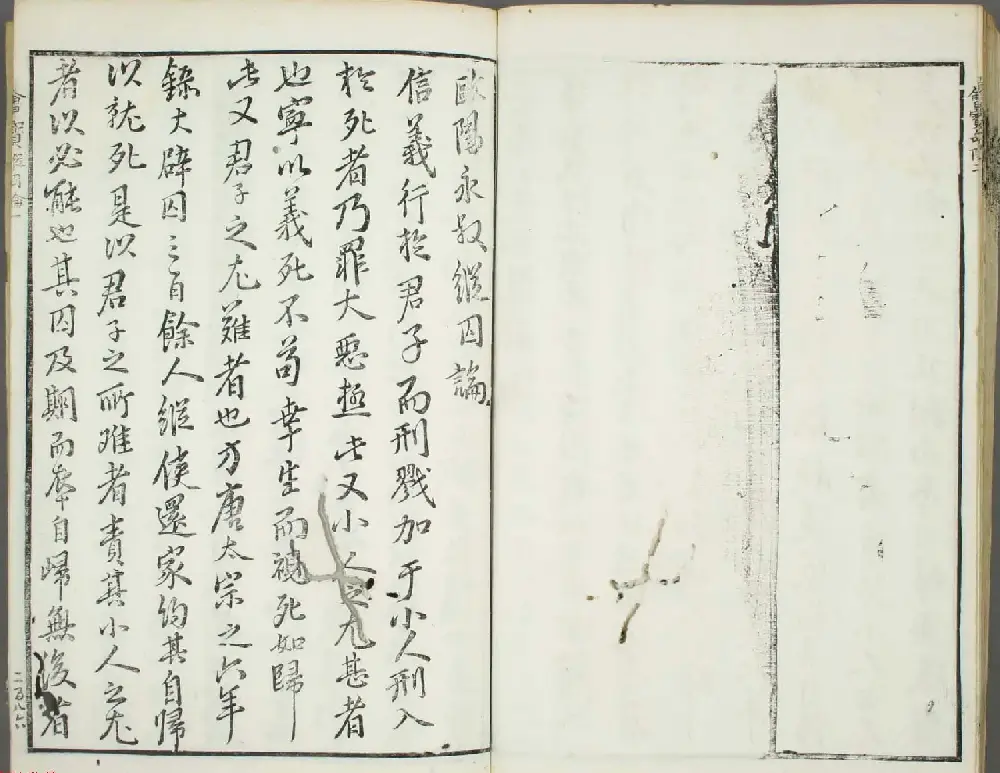 歐陽永叔縱囚論
信義行於君子而刑戮加于小人刑入
於死者乃罪大惡極此又小人之尤甚者
也寧以義死不苟幸生而視死如歸
此又君子之尤難者也方唐太宗之六年
錄大辟囚三百餘人縱使還家約其自歸
以就死是以君子之所难者責其小人之尤
者以必能也其囚及期而卒自歸無後者
二百八六